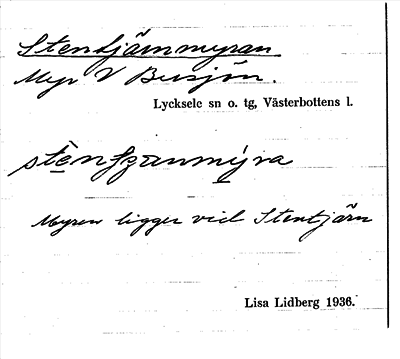 Stentjärnmyran
Myr V Busjön.
Lycksele sn o. tg, Västerbottens l.
Myren ligger vid Stentjärn
Lisa Lidberg 1936.